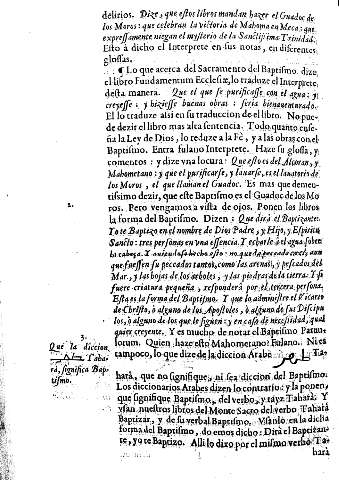 delirios. Dize, que estos libros mandan hazer el Guadoc de
los Moros: que celebran la victoria de Mahoma en Meca: que
expressamente niegan el mysterio de la Sanctissima Trinidad.
Esto à dicho el Interprete en sus notas, en diferentes
glossas.
¶ Lo que acerca del Sacramento del Baptismo dize,
el libro Fundamentum Ecclesiæ, lo traduze el Interprete,
desta manera. Que el que se purificasse con el agua: y
creyesse: y hiziesse buenas obras: seria bienaventurado.
El lo traduze assi en su traduccion de el libro. No pue-
de dezir el libro mas alta sentencia. Todo quanto ense-
ña la Ley de Dios, lo reduze a la Fè, y a las obras con el
Baptismo. Entra fulano Interprete. Haze su glossa, y
comentos: y dize una locura: Que esto es del Alcoran, y
Mahometano: y que el purificarse, y lavarse, es el lavatorio de
los Moros, el que llaman el Guadoc. Es mas que demen-
tissimo dezir, que este Baptismo es el Guadoc de los Mo-
2.
ros. Pero vengamos a vista de ojos. Ponen los libros
la forma del Baptismo. Dizen: Que dirà el Baptizante:
Yo te Baptizo en el nombre de Dios Padre, y Hijo, y Espiritu
Sancto: tres personas en una essencia. Y echarle à el agua sobre
la cabeça.
que fuessen su peccados tantos, como las arenas, y pescados del
Mar, y las hojas de los arboles, y las piedras de la tierra. Y si
fuere criatura pequeña, responderà por el tercera persona.
Esta es la forma del Baptismo. Y que lo administre el Vicario
de Christo, ò alguno de los Apostoles, ò alguno de sus Discipu-
los, ò alguno de los que le siguen: y en caso de necessidad, qual
quier creyente. Y es nudio de notar el Baptismo Parvu-
lorum. Quien haze esto Mahometano? Fulano. Ni es
tampoco, lo que dize de la diccion Arabe Ta-
3.
Que la diccion
Taha-
rà, significa Bap-
tismo.
harà, que no signifique, ni sea diccion del Baptismo.
Los diccionarios Arabes dizen lo contrario: y la ponen,
que signifique Baptismo, del verbo, y rayz Taharà. Y
usan nuestros libros del Monte Sacro del verbo Taharà
Baptizar, y de su verbal Baptismo. Usanlo en la dicha
forma del Baptismo, do emos dicho: Dirà el Baptizan-
te, yo te Baptizo. Alli lo dixo por el mismo verbo Ta-
harà